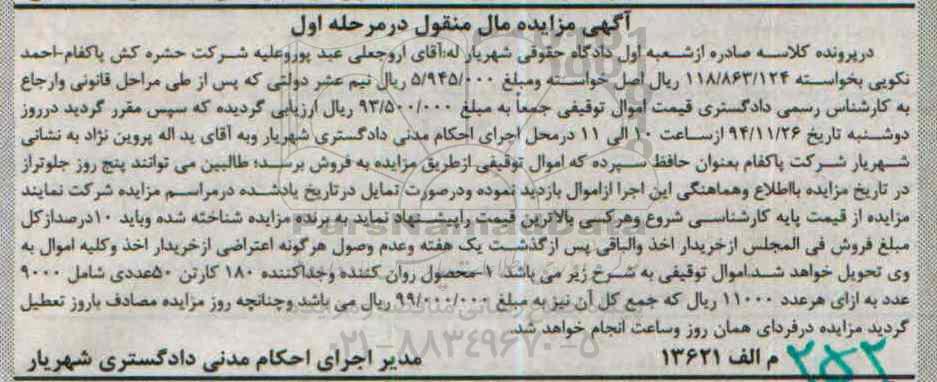 آگهی مزایده مال منقول درمرحله اول
درپرونده کلاسه صادره ازشعبه اول دادگاه حقوقی شهریار له:آقای اروجعلی عبد پوروعلیه شرکت حشره کش پاکفام-احمد
نکویی بخواسته ۱۱۸/۸۶۳/۱۲۴ ریال اصل خواسته ومبلغ ۵/۹۴۵/۰۰۰ ریال نیم عشر دولتی که پس از طی مراحل قانونی وارجاع
به کارشناس رسمی دادگستری قیمت اموال توقیفی جمعاً به مبلغ ۹۳/۵۰۰/۰۰۰ ریال ارزیابی گردیده که سپس مقرر گردید درروز
دوشنبه تاریخ ۹۴/۱۱/۲۶ ازساعت ۱۰ الی ۱۱ درمحل اجرای احکام مدنی دادگستری شهریار وبه آقای ید اله پروین نژاد به نشانی
شهریار شرکت پاکفام بعنوان حافظ سپرده که اموال توقیفی ازطریق مزایده به فروش برسد؛ طالبین می توانند پنج روز جلوتراز
در تاریخ مزایده بااطلاع وهماهنگی این اجرا ازاموال بازدید نموده ودرصورت تمایل درتاریخ یادشده درمراسم مزایده شرکت نمایند
مزایده از قیمت پایه کارشناسی شروع وهرکسی بالاترین قیمت راپیشنهاد نماید به برنده مزایده شناخته شده وباید ۱۰درصدازکل
مبلغ فروش فی المجلس ازخریدار اخذ والباقی پس ازگذشت یک هفته وعدم وصول هرگونه اعتراضی ازخریدار اخذ وکلیه اموال به
وی تحویل خواهد شد.اموال توقیفی به شرح زیر می باشد. ۱-محصول روان کننده وجداکننده ۱۸۰ کارتن ۵۰عددی شامل ۹۰۰۰
عدد به ازای هرعدد ۱۱۰۰۰ ریال که جمع کل آن نیز به مبلغ ۹۹/۰۰۰/۰۰۰ ریال می باشد وچنانچه روز مزایده مصادف باروز تعطیل
گردید مزایده درفردای همان روز وساعت انجام خواهد شد.
۰۲۱-۸۸۳۴۹۶۷۰-۵
م الف ۱۳۶۲۱ مدیر اجرای احکام مدنی دادگستری شهریار
۲۵۲
ParsNamadData